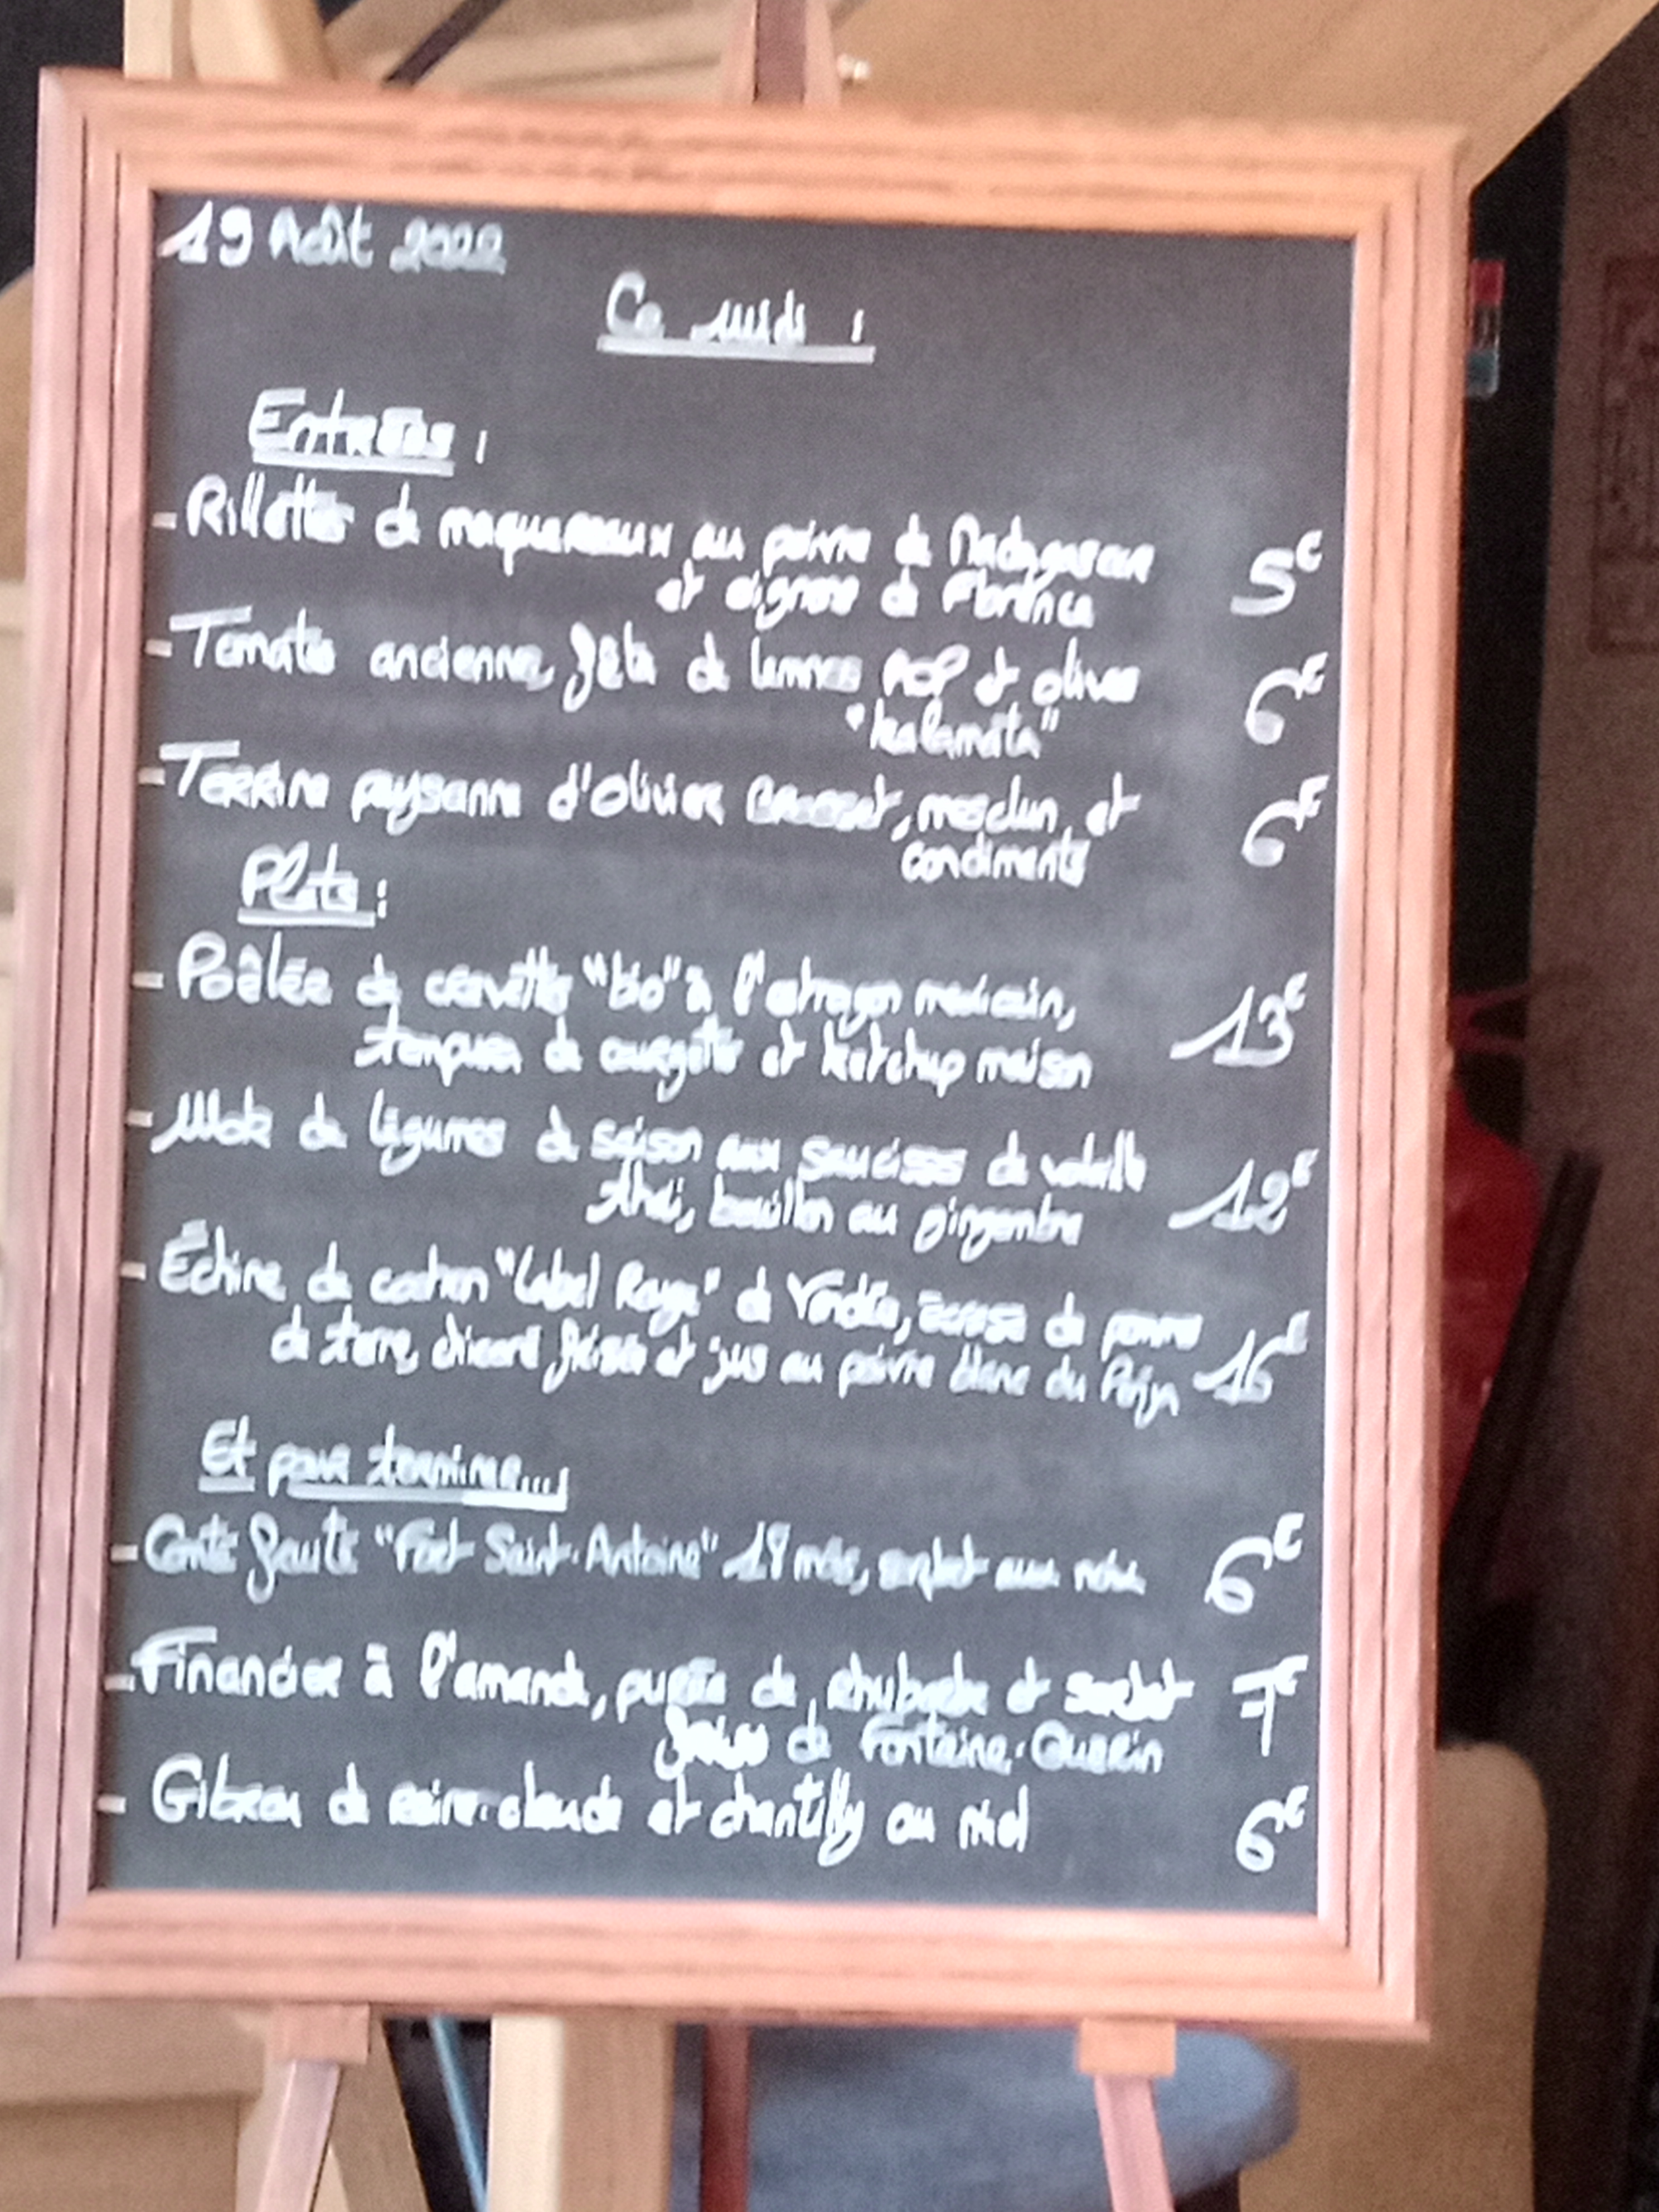 19 Août 2022
Ce midi :
Entrées :
- Rillettes de maquereaux au poivre de Madagascar 5€
et oignons de Florence
- Tomates anciennes, fêta de lemnos AOP et olives 6€
"kalamata"
- Terrine paysanne d'Olivier, mesclun et 6€
condiments
Plats :
- Poêlée de crevettes "bio" à l'estragon mexicain, 13€
tempura de courgette et ketchup maison
- Wok de légumes de saison aux saucisses de volaille 12€
thaï, bouillon au gingembre
- Échine de cochon "Label Rouge" de Vendée, écrasé de pommes
de terre, et jus au poivre blanc du Penja 16€
Et pour terminer...
- Comté fruité "Fort Saint-Antoine" 18 mois, aux noix 6€
- Financier à l'amande, purée de rhubarbe et sorbet 7€
fraises de Fontaine-Guérin
- Gibreau de reine-claude et chantilly au miel 6€